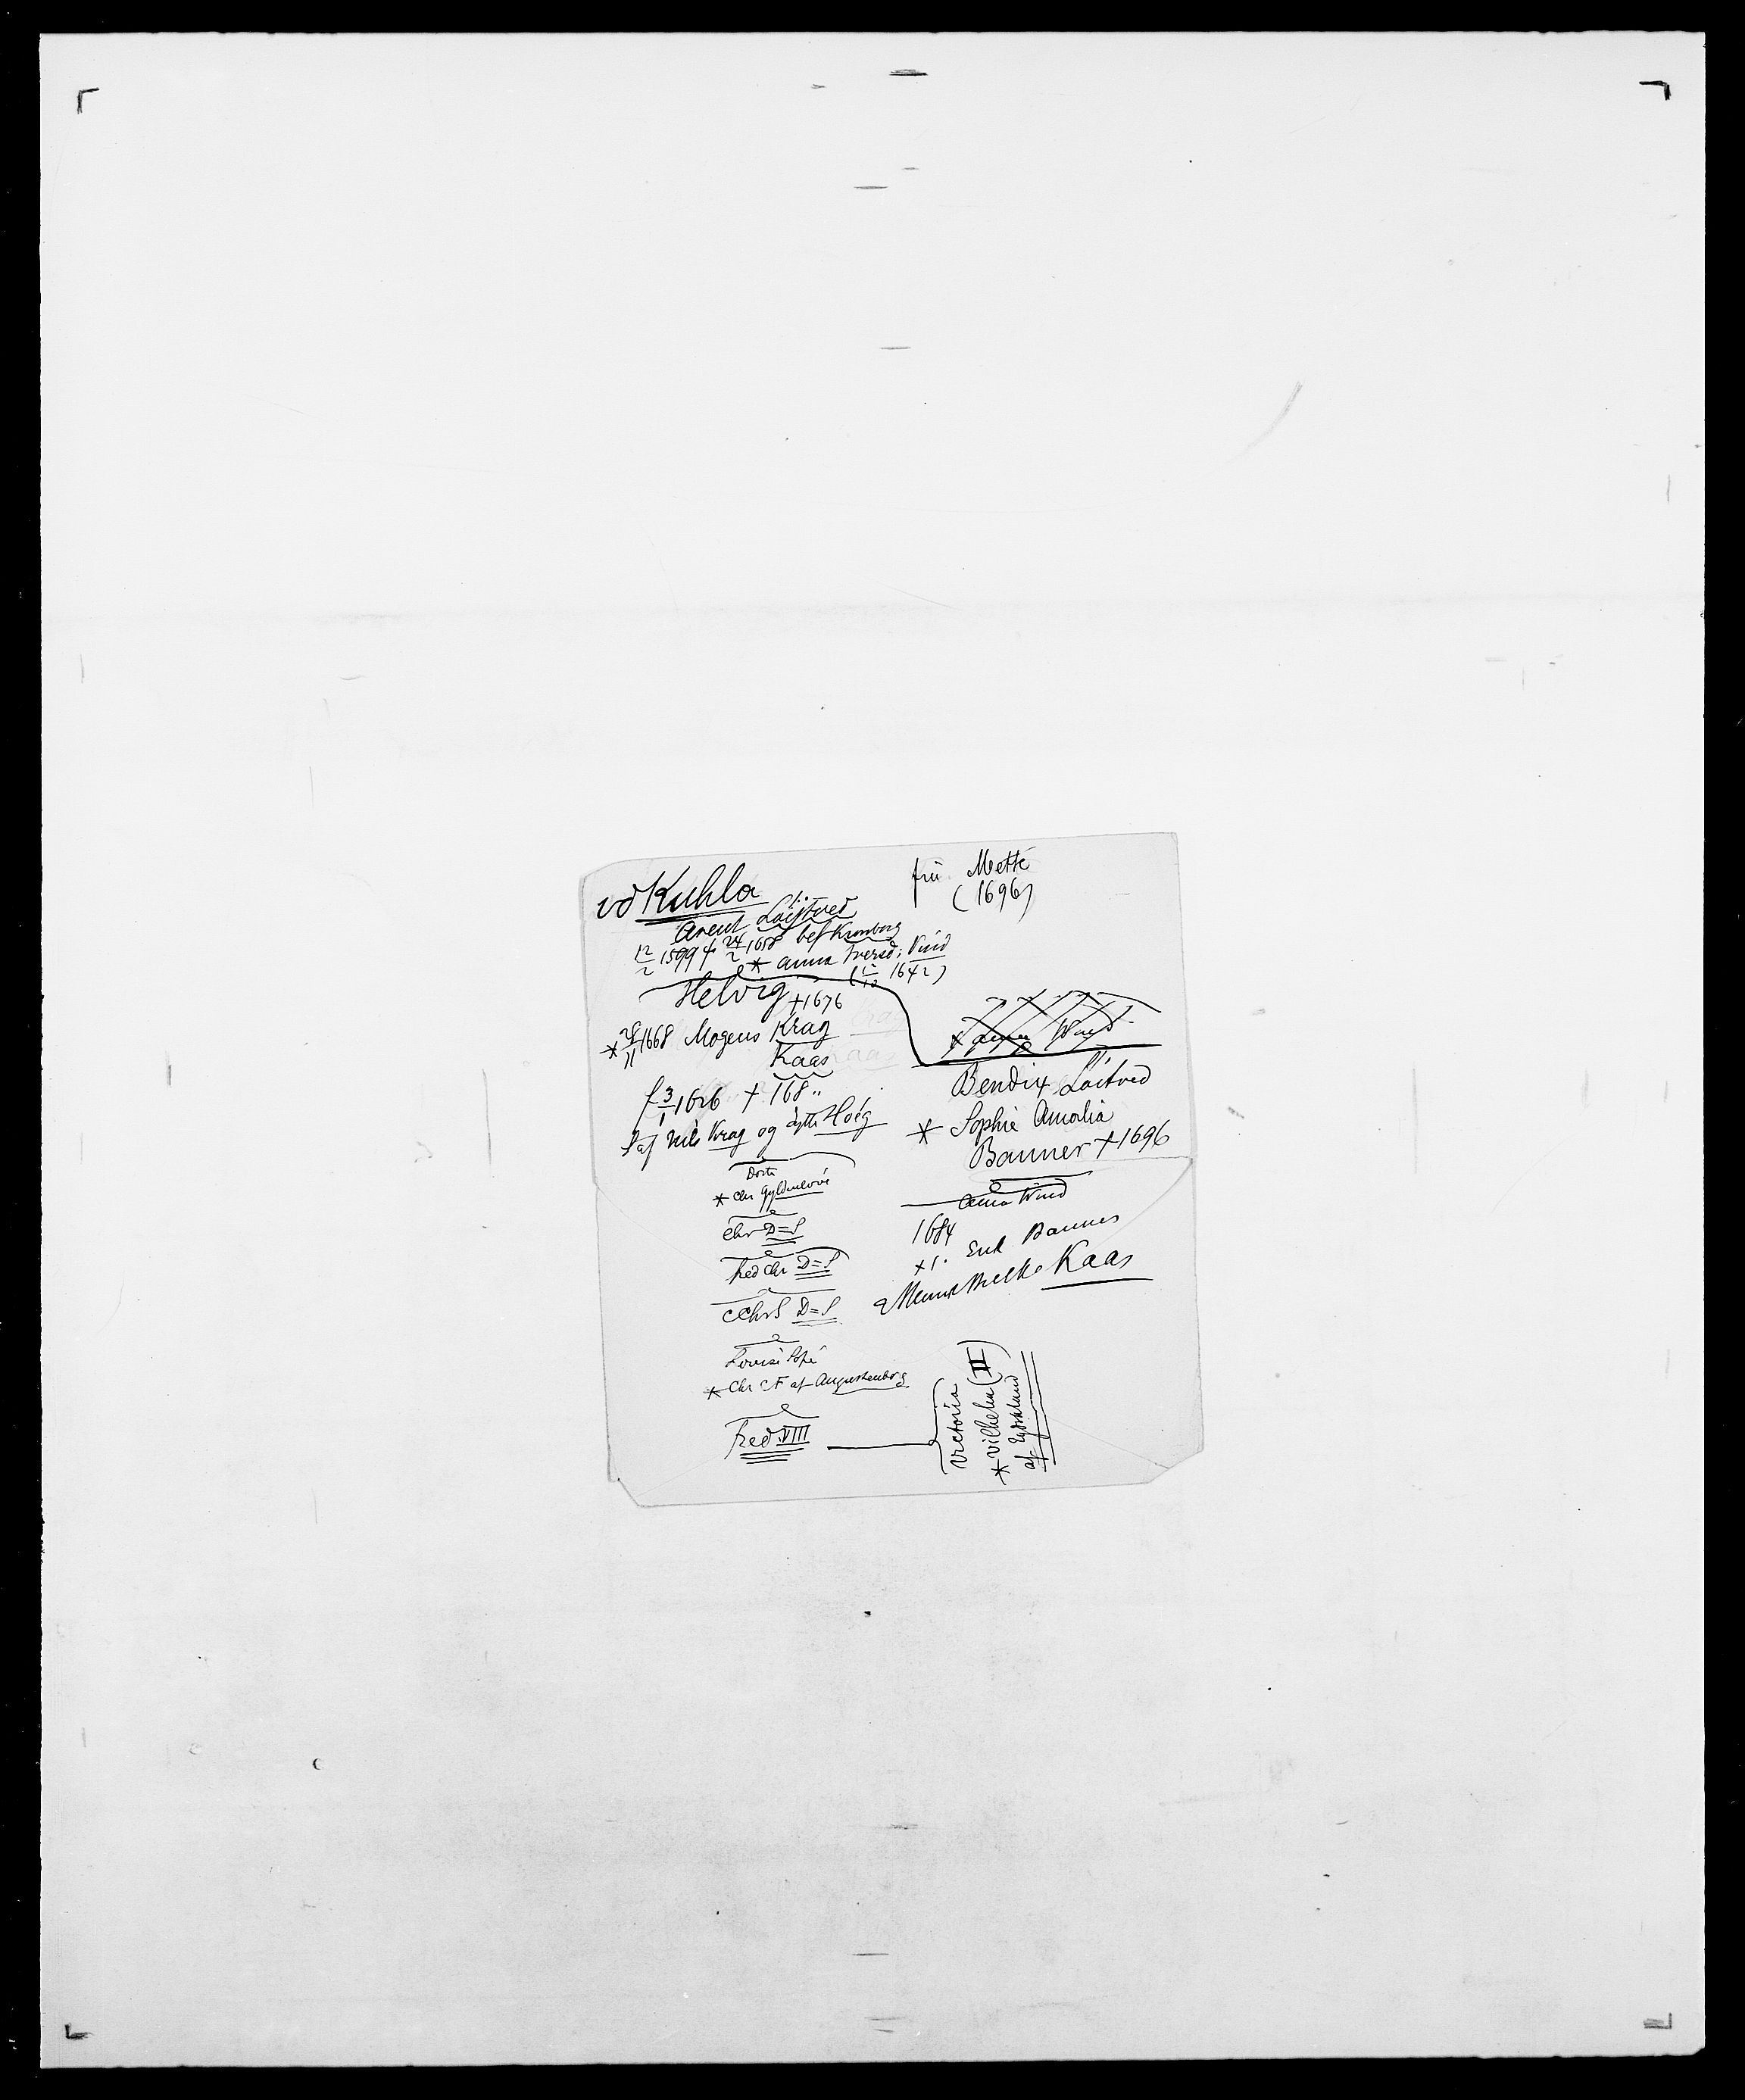 vd Kuhla
fru Mette
(1696)
Arent Löitved
12/2 1599 † 24/2 1658 bef Kronborg
* Anna Iversd: Vind
(1/10 1642)
Helvig † 1676
* 28/11 1668 Mogens Krag
Kaas
f 3/1 1626 † 168..
S af Nils Krag og Jytte Höeg
Dorte
* Chr Gyldenlöve
Chr D=S
Fred Chr D=S
CChrS D=S
Lovise Sofie
* Chr C F af Augustenborg
Fred. VIII
Victoria
* Vilhelm (II)
af Tyskland
Bendix Löitved
* Sophie Amalia
Banner † 1696
Anna Vind
1684
* 1. Erik Banner
Munk Kaas